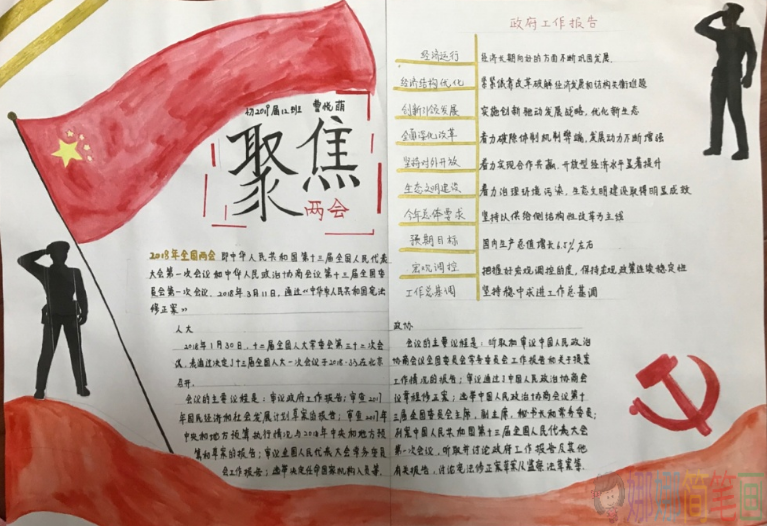 初2019届12班 曹悦萌
聚焦
两会
2018年全国两会 即中华人民共和国第十三届全国人民代表
大会第一次会议和中华人民政治协商会议第十三届全国委
员会第一次会议。2018年3月11日，通过《中华人民共和国宪法
修正案》
人大
2018年1月30日，十二届全国人大常委会第三十二次会
议，表决通过决定：十三届全国人大一次会议于2018.3.5在北京
召开。
会议的主要议程是：审议政府工作报告；审查2017
年国民经济和社会发展计划草案的报告；审查2017年
中央和地方预算执行情况与2018年中央和地方预
算和草案的报告；审议全国人民代表大会常务委员
会工作报告；选举决定任命国家机构人员等。
政府工作报告
经济运行 经济长期向好的方面不断巩固发展
经济结构优化 紧紧依靠改革破解经济发展和结构失衡难题
创新引领发展 实施创新驱动发展战略，优化新生态
全面深化改革 着力破除体制机制弊端，发展动力不断增强
坚持对外开放 着力实现合作共赢，开放型经济水平显著提升
生态文明建设 着力治理环境污染，生态文明建设取得明显成效
今年总体要求 坚持以供给侧结构性改革为主线
预期目标 国内生产总值增长6.5%左右
宏观调控 把握好宏观调控的度，保持宏观政策连续稳定性
工作总基调 坚持稳中求进工作总基调
政协
会议的主要议程是：听取和审议中国人民政治
协商会议全国委员会常务委员会工作报告和关于提案
工作情况的报告；审议通过了中国人民政治协商会
议章程修正案；选举中国人民政治协商会议第十
三届全国委员会主席，副主席，秘书长和常务委员；
列席中国人民共和国第十三届全国人民代表大会
第一次会议，听取并讨论政府工作报告及其他
有关报告，讨论宪法修正案草案从监察法草案等。
娜娜简笔画